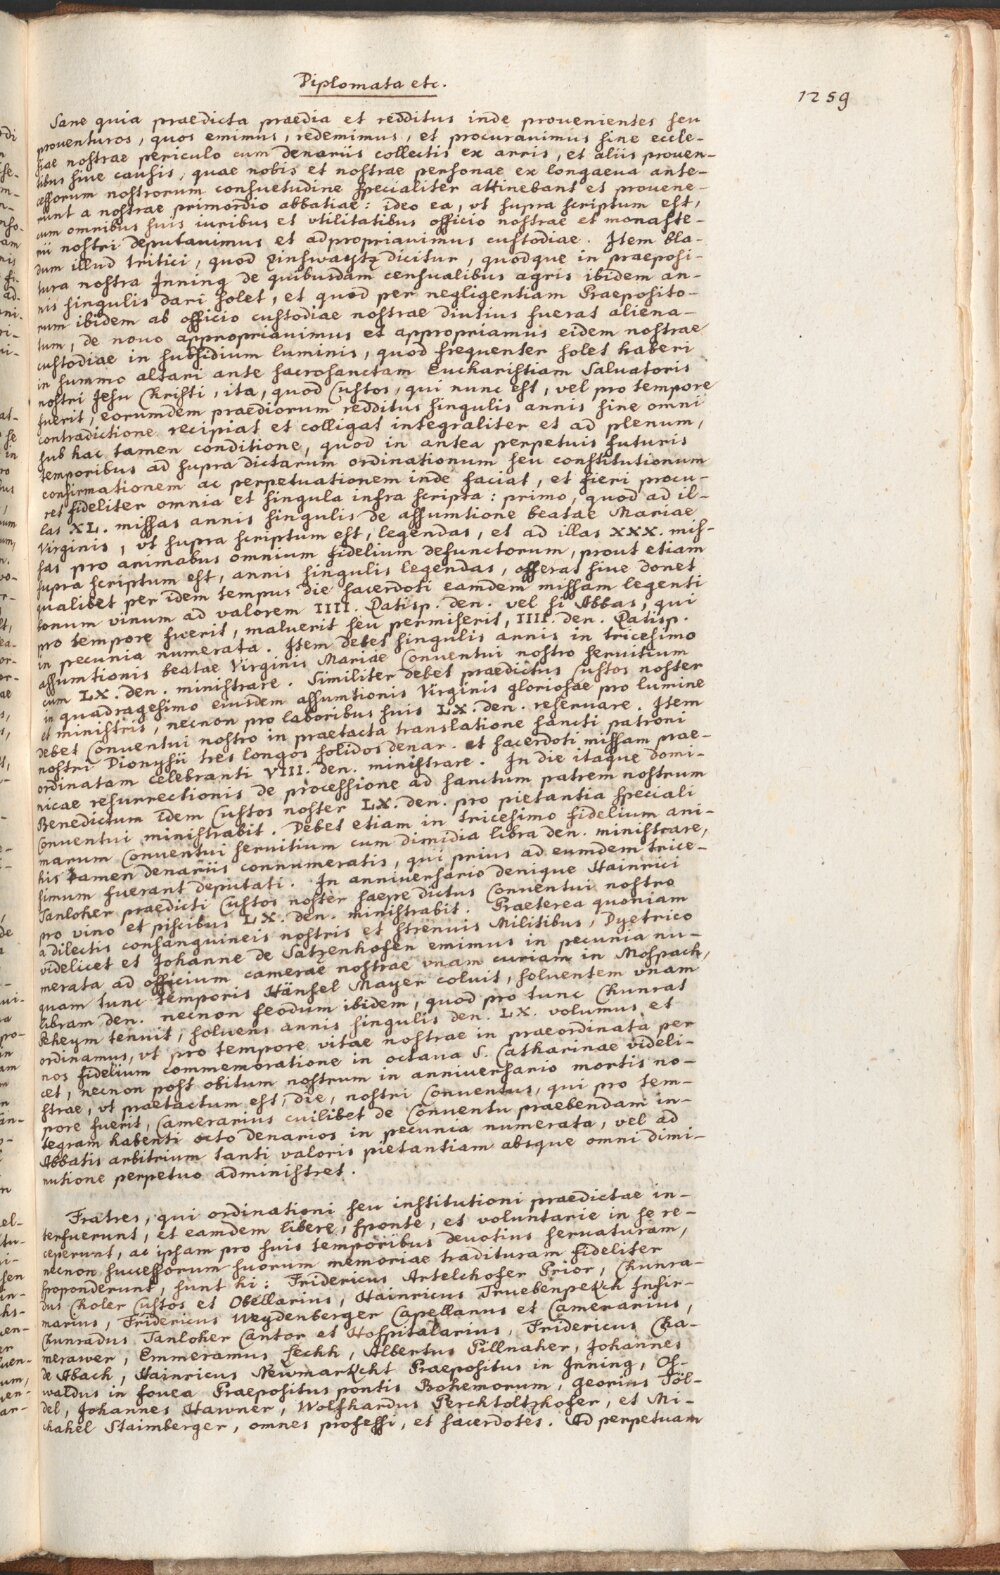 Diplomata etc.
1259
Sane quia praedicta praedia et redditus inde prouenientes seu
prouenturos, quos emimus, redemimus, et procurauimus sine eccle-
siae nostrae periculo cum denariis collectis ex arris, et aliis prouen-
tibus siue causis, quae nobis et nostrae personae ex longaeua ante-
cessorum nostrorum consuetudine specialiter attinebant et prouene-
runt a nostrae primordio abbatiae: ideo ea, vt supra scriptum est,
cum omnibus suis iuribus et vtilitatibus officio nostrae et monaste-
rii nostri deputauimus et adpropriauimus custodiae. Item bla-
dum illud tritici, quod dicitur, quodque in praeposi-
tura nostra Inning de quibusdam censualibus agris ibidem an-
nis singulis dari solet, et quod per negligentiam Praeposito-
rum ibidem ab officio custodiae nostrae diutius fuerat aliena-
tum, de nouo appropriauimus et appropriamus eidem nostrae
custodiae in subsidium luminis, quod frequenter solet haberi
in summo altari ante sacrosanctam Eucharistiam Saluatoris
nostri Jesu Christi, ita, quod Custos, qui nunc est, vel pro tempore
fuerit, eorumdem praediorum redditus singulis annis sine omni
contradictione recipiat et colligat integraliter et ad plenum,
sub hac tamen conditione, quod in antea perpetuis futuris
temporibus ad supra dictarum ordinationum seu constitutionum
confirmationem ac perpetuationem inde faciat, et fieri procu-
ret fideliter omnia et singula infra scripta: primo, quod ad il-
las XL. missas annis singulis de assumtione beatae Mariae
Virginis, vt supra scriptum est, legendas, et ad illas XXX. mis-
sas pro animabus omnium fidelium defunctorum, prout etiam
supra scriptum est, annis singulis legendas, offerat siue donet
qualibet per idem tempus die sacerdoti eamdem missam legenti
bonum vinum ad valorem IIII. Ratisp. den. vel si Abbas, qui
pro tempore fuerit, maluerit seu permiserit, IIII. den. Ratisp.
in pecunia numerata. Item debet singulis annis in tricesimo
assumtionis beatae Virginis Mariae Conuentui nostro seruitium
cum LX. den. ministrare. Similiter debet praedictus Custos noster
in quadragesimo eiusdem assumtionis Virginis gloriosae pro lumine
et ministris, necnon pro laboribus suis LX. den. reseruare. Item
debet Conuentui nostro in praetacta translatione sancti patroni
nostri Dionysii tres longos solidos denar. et sacerdoti missam prae-
ordinatam celebranti VIII. den. ministrare. In die itaque domi-
nicae resurrectionis de processione ad sanctum patrem nostrum
Benedictum idem Custos noster LX. den. pro pietantia speciali
Conuentui ministrabit. Debet etiam in tricesimo fidelium ani-
marum Conuentui seruitium cum dimidia libra den. ministrare,
his tamen denariis connumeratis, qui prius ad eumdem trice-
simum fuerant deputati. In anniuersario denique Hainrici
Tanloher praedicti Custos noster saepe dictus Conuentui nostro
pro vino et piscibus LX. den. ministrabit. Praeterea quoniam
a dilectis consanguineis nostris et strenuis Militibus, Dyetrico
videlicet et Johanne de Satzenhofen emimus in pecunia nu-
merata ad officium camerae nostrae vnam curiam in Mospach,
quam tunc temporis Hänsel Mayer coluit, soluentem vnam
libram den. necnon feodum ibidem, quod pro tunc Chunrat
Scheym tenuit, soluens annis singulis den. LX. volumus et
ordinamus, vt pro tempore vitae nostrae in praeordinata per
nos fidelium commemoratione in octaua S. Catharinae videli-
cet, necnon post obitum nostrum in anniuersario mortis no-
strae, vt praetactum est, die, nostri Conuentus, qui pro tem-
pore fuerit, Camerarius cuilibet de Conuentu praebendam in-
tegram habenti octo denarios in pecunia numerata, vel ad
Abbatis arbitrium tanti valoris pietantiam absque omni dimi-
nutione perpetuo administret.
Fratres, qui ordinationi seu institutioni praedictae in-
terfuerunt, et eamdem libere, sponte, et voluntarie in se re-
ceperunt, ac ipsam pro suis temporibus deuotius seruaturam,
necnon successorum suorum memoriae tradituram fideliter
sponderunt, sunt hi: Fridericus Artelchofer Prior, Chunra-
dus Choler Custos et Obellarius, Hainricus Truebenpekch Infir-
marius, Fridericus Weydenberger Capellanus et Camerarius,
Chunradus Tanloher Cantor et Hospitalarius, Fridericus Cha-
merawer, Emmeramus Lechh, Albertus Pillnaher, Johannes
de Abach, Hainricus Newmarkcht Praepositus in Inning, Os-
waldus in fouea Praepositus pontis Bohemorum, Georius Töl-
del, Johannes Hawner, Wolfhardus Perchtoltzhofer, et Mi-
chahel Staimberger, omnes professi, et sacerdotes. Ad perpetuam